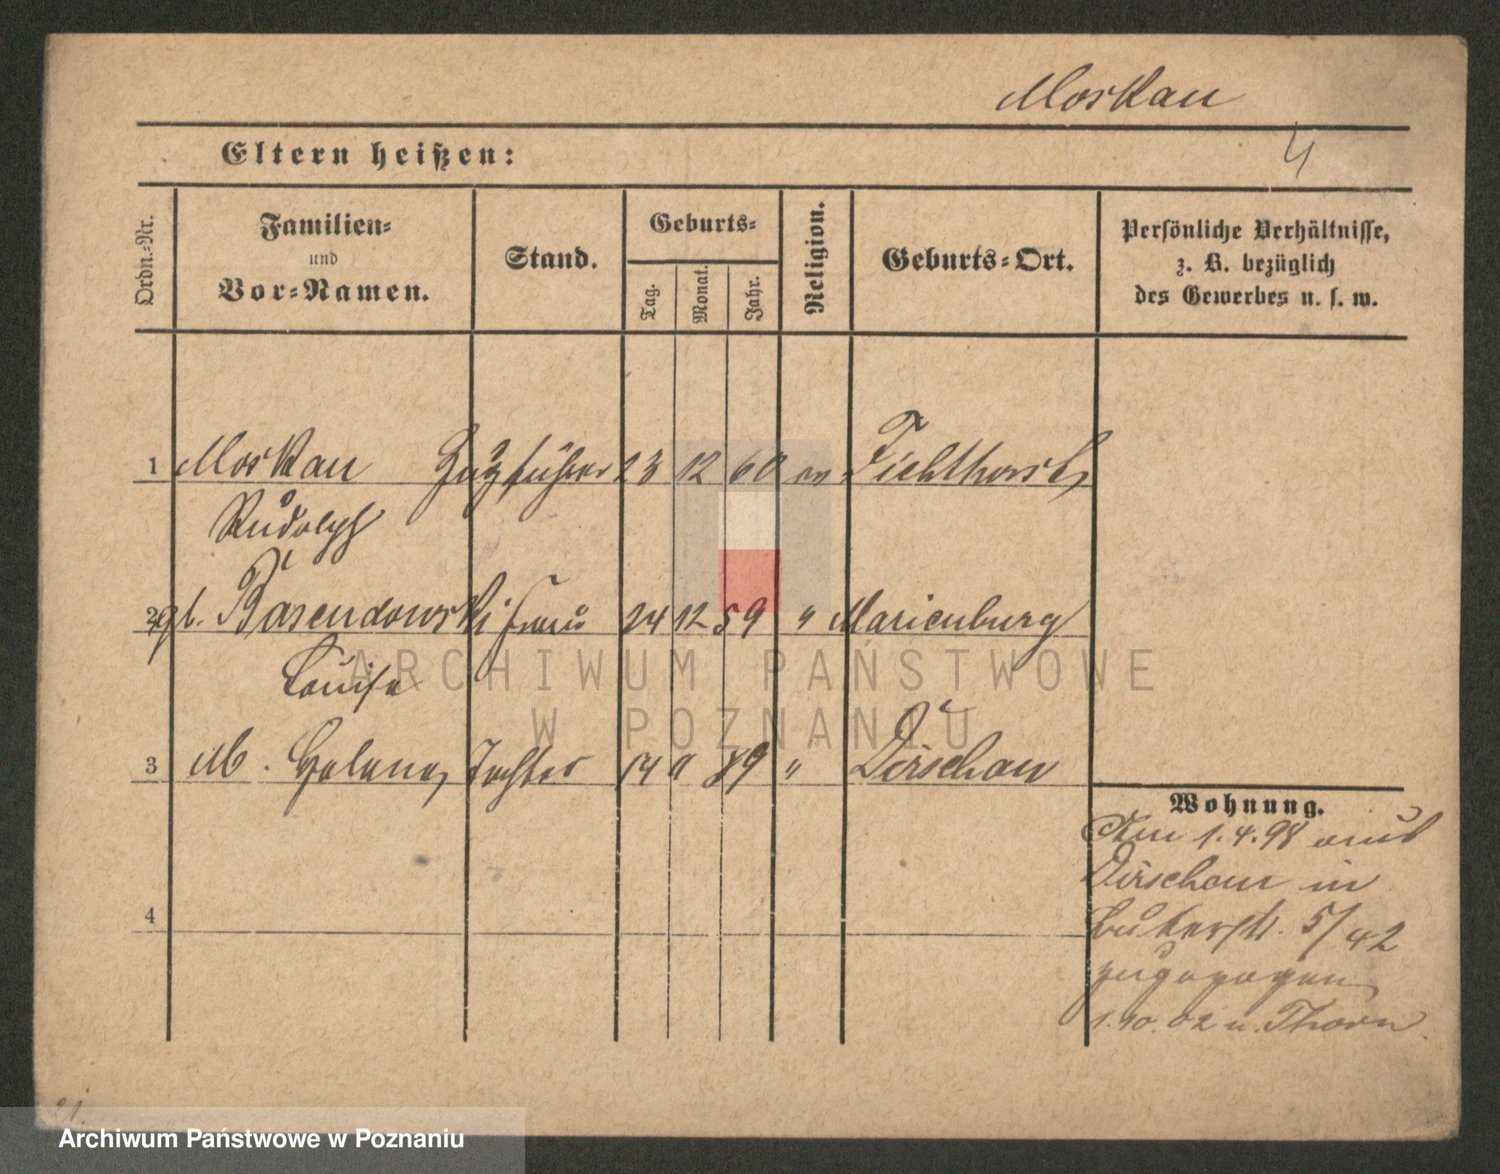 Moskau
4
Eltern heißen:
Ordn.=Nr.
Familien=
und
Vor=Namen.
Stand.
Geburts=
Tag.
Monat.
Jahr.
Religion.
Geburts=Ort.
Persönliche Verhältnisse,
z. B. bezüglich
des Gewerbes u. s. w.
1 Moskau Zugführer 23 12 60 ev Fichthorst
Rudolph
2 gb. Basendowski Frau 24 12 59 " Marienburg
Louise
3 M. Helene Tochter 14 9 89 " Dirschau
4
Wohnung.
Am 1.4.98 aus
Dirschau in
Bukerstr. 5/42
zugezogen
1.10.02 n. Thorn
21.
ARCHIWUM PAŃSTWOWE
W POZNANIU
Archiwum Państwowe w Poznaniu